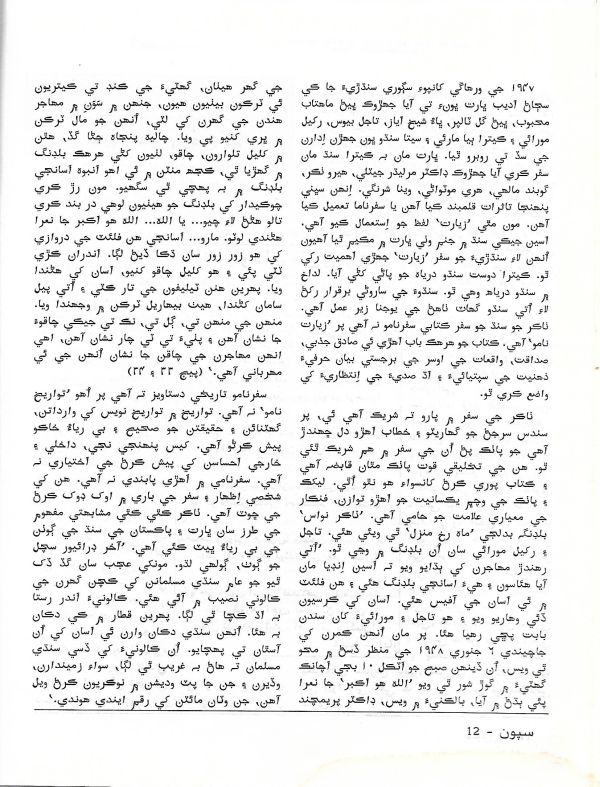 ۱۹۴۷ جي ورهاڱي کانپوءِ سڳوري سنڌڙيءَ جا کي
سڄاڻ اديب ڀارت ڀونءِ تي آيا جهڙوڪ ڀيڻ ماهتاب
محبوب، ڀيڻ گل ٽالپر، ڀاءُ شيخ اياز، تاجل بيوس، رکيل
مورائي ۽ ڪيترا ٻيا مارئي ۽ سيتا سنڌو ڀون جهڙن ادارن
جي سڏ تي روبرو ٿيا. ڀارت مان به ڪيترا سنڌ مان
سفر ڪري آيا جهڙوڪ ڊاڪٽر مرليڌر جيٽلي، هيرو ٺڪر،
گوبند مالهي، هري موٽواڻي، وينا شرنگي. انهن سڀني
پنهنجا تاثرات قلمبند ڪيا آهن يا سفرناما تعميل ڪيا
آهن. مون مٿي 'زيارت' لفظ جو استعمال ڪيو آهي.
اسين جيڪي سنڌ ۾ جنم ولي ڀارت ۾ مڪيم ٿيا آهيون
اُنهن لاءِ سنڌڙيءَ جو سفر 'زيارت' جهڙي اهميت رکي
ٿو. ڪيترا دوست سنڌو درياهه جو پاڻي کڻي آيا. لداخ
۾ سنڌو درياهه وهي ٿو. سنڌوءَ جي ساروڻي برقرار رکڻ
لاءِ اُتي سنڌو گهاٽ ٺاهڻ جي يوجنا زير عمل آهي.
ٺاڪر جو سنڌ جو سفر ڪتابي سفرنامو نه آهي پر 'زيارت
نامو' آهي. ڪتاب جو هرهڪ باب اهڙي ئي صادق جذبي،
صداقت، واقعات جي اوسر جي برجستي بيان حرفيءَ
ذهنيت جي سپٽيائيءَ ۽ اڌ صديءَ جي اِنتظاريءَ کي
واضع ڪري ٿو.
ٺاڪر جي سفر ۾ پارو ته شريڪ آهي ئي، پر
سندس سرجڻ جو گهاريٽو ۽ خطاب اهڙو دل ڇهندڙ
آهي جو پاٺڪ پڻ اُن جي سفر ۾ هم شريڪ ٿئي
ٿو. هن جي تخليقي قوت پاٺڪ مٿان قابضه آهي
۽ ڪتاب پوري ڪرڻ کانسواءِ هو نٿو اُٿي. ليکڪ
۽ پاٺڪ جي وچم يڪسانيت جو اهڙو توازن، فنڪار
جي معياري علامت جو حامي آهي. 'ٺاڪر نواس'
بلڊنگ بدلجي 'ماه رخ منزل' ٿي ويئي هئي. تاجل
۽ رکيل مورائي سان اُن بلڊنگ ۾ وڃي ٿو. 'اُتي
رهندڙ مهاجرن کي ٻڌايو ويو ته اَسين اِنڊيا مان
آيا هئاسون ۽ هيءَ اسانجي بلڊنگ هئي ۽ هن فلئٽ
۾ ئي اسان جي آفيس هئي. اسان کي ڪرسيون
ڏئي وهاريو ويو ۽ هو تاجل ۽ مورائيءَ کان سندن
بابت پڇي رهيا هئا. پر مان اُنهن ڪمرن کي
جاچيندي ۶ جنوري ۱۹۴۸ جي منظر ڏسڻ ۾ محو
ٿي ويس، اُن ڏينهن صبح جو اٽڪل ۱۰ بجي اُچانڪ
گهٽيءَ ۾ گوڙ شور ٿي ويو 'الله هو اکبر' جا نعرا
پئي ٻڌڻ ۾ آيا، بالڪنيءَ ۾ ويس، ڊاڪٽر پريمچند
جي گهر هيٺان، گهٽيءَ جي ڪنڊ تي ڪيتريون
ئي ٽرڪون بيٺيون هيون، جنهن ۾ سَوَن ۾ مهاجر
هندن جي گهرن کي لٽي، اُنهن جو مال ٽرڪن
۾ ڀري کنيو پي ويا. چاليهه پنجاهه ڄڻا گڏ، هٿن
۾ کليل تلوارون، چاقو، لٺيون کڻي هرهڪ بلڊنگ
۾ گهڙيا ٿي، ڪجهه منٽن ۾ ئي اهو انبوهه اَسانجي
بلڊنگ ۾ به پهچي ٿي سگهيو. مون رڙ ڪري
چوڪيدار کي بلڊنگ جو هيٺيون لوهي در بند ڪري
تالو هڻڻ لاءِ چيو... يا الله... الله هو اکبر جا نعرا
هڻندي لوٽو. مارو... اَسانجي هن فلئٽ جي دروازي
کي هو زور زور سان ڌڪا ڏيڻ لڳا. اندران ڪڙي
ٽٽي پئي ۽ هو کليل چاقو کنيو، اَسان کي هڻندا
ويا. پهرين هنن ٽيليفون جي تار ڪٽي ۽ اُتي پيل
سامان کڻندا، هيٺ بيهاريل ٽرڪن ۾ وجهندا ويا.
منهن جي منهن تي، ڳل تي، نڪ تي جيڪي چاقوءَ
جا نشان آهن ۽ پٺيءَ تي ٿي چار نشان آهن، اهي
انهن مهاجرن جي چاقن جا نشان اُنهن جي ئي
مهرباني آهي.' (پيج ۲۳ ۽ ۲۴)
سفرنامو تاريخي دستاويز ته آهي پر اُهو 'تواريخ
نامو' نه آهي. تواريخ ۾ تواريخ نويس کي وارداتن،
گهٽنائن ۽ حقيقتن جو صحيح ۽ بي رياءُ خاڪو
پيش ڪرڻو آهي. کيس پنهنجي نجي، داخلي ۽
خارجي احساسن کي پيش ڪرڻ جي اُختياري نه
آهي. سفرنامي ۾ اهڙي پابندي نه آهي. هن کي
شخصي اِظهار ۽ سفر جي باري ۾ اوڪ ڊوڪ ڪرڻ
جي ڇوٽ آهي. ٺاڪر ڪٿي ڪٿي مشابهتي مفهوم
جي طرز سان ڀارت ۽ پاڪستان جي سنڌ جي ڳوٺن
جي بي رياءُ ڀيٽ ڪئي آهي. 'آخر ڊرائيور سچل
جو ڳوٺ، ڳولهي لڌو. مونکي عجب سان گڏ ڏک
ٿيو جو عام سنڌي مسلمانن کي ڪچن گهرن جي
ڪالوني نصيب ۾ اَئي هئي. ڪالونيءَ اندر رستا
به اڌ ڪچا ئي لڳا. پهرين قطار ۾ کي دڪان
به هئا. اُنهن سنڌي دڪان وارن ئي اسان کي اُن
آستان تي پهچايو. اُن ڪالونيءَ کي ڏسي سنڌي
مسلمان ته هاڻ به غريب ئي لڳا، سواءِ زميندارن،
وڏيرن ۽ جن جا پٽ وديشن ۾ نوڪريون ڪرڻ ويل
آهن، جن وٽان مائٽن کي رقم ايندي هوندي.'
سپون - 12